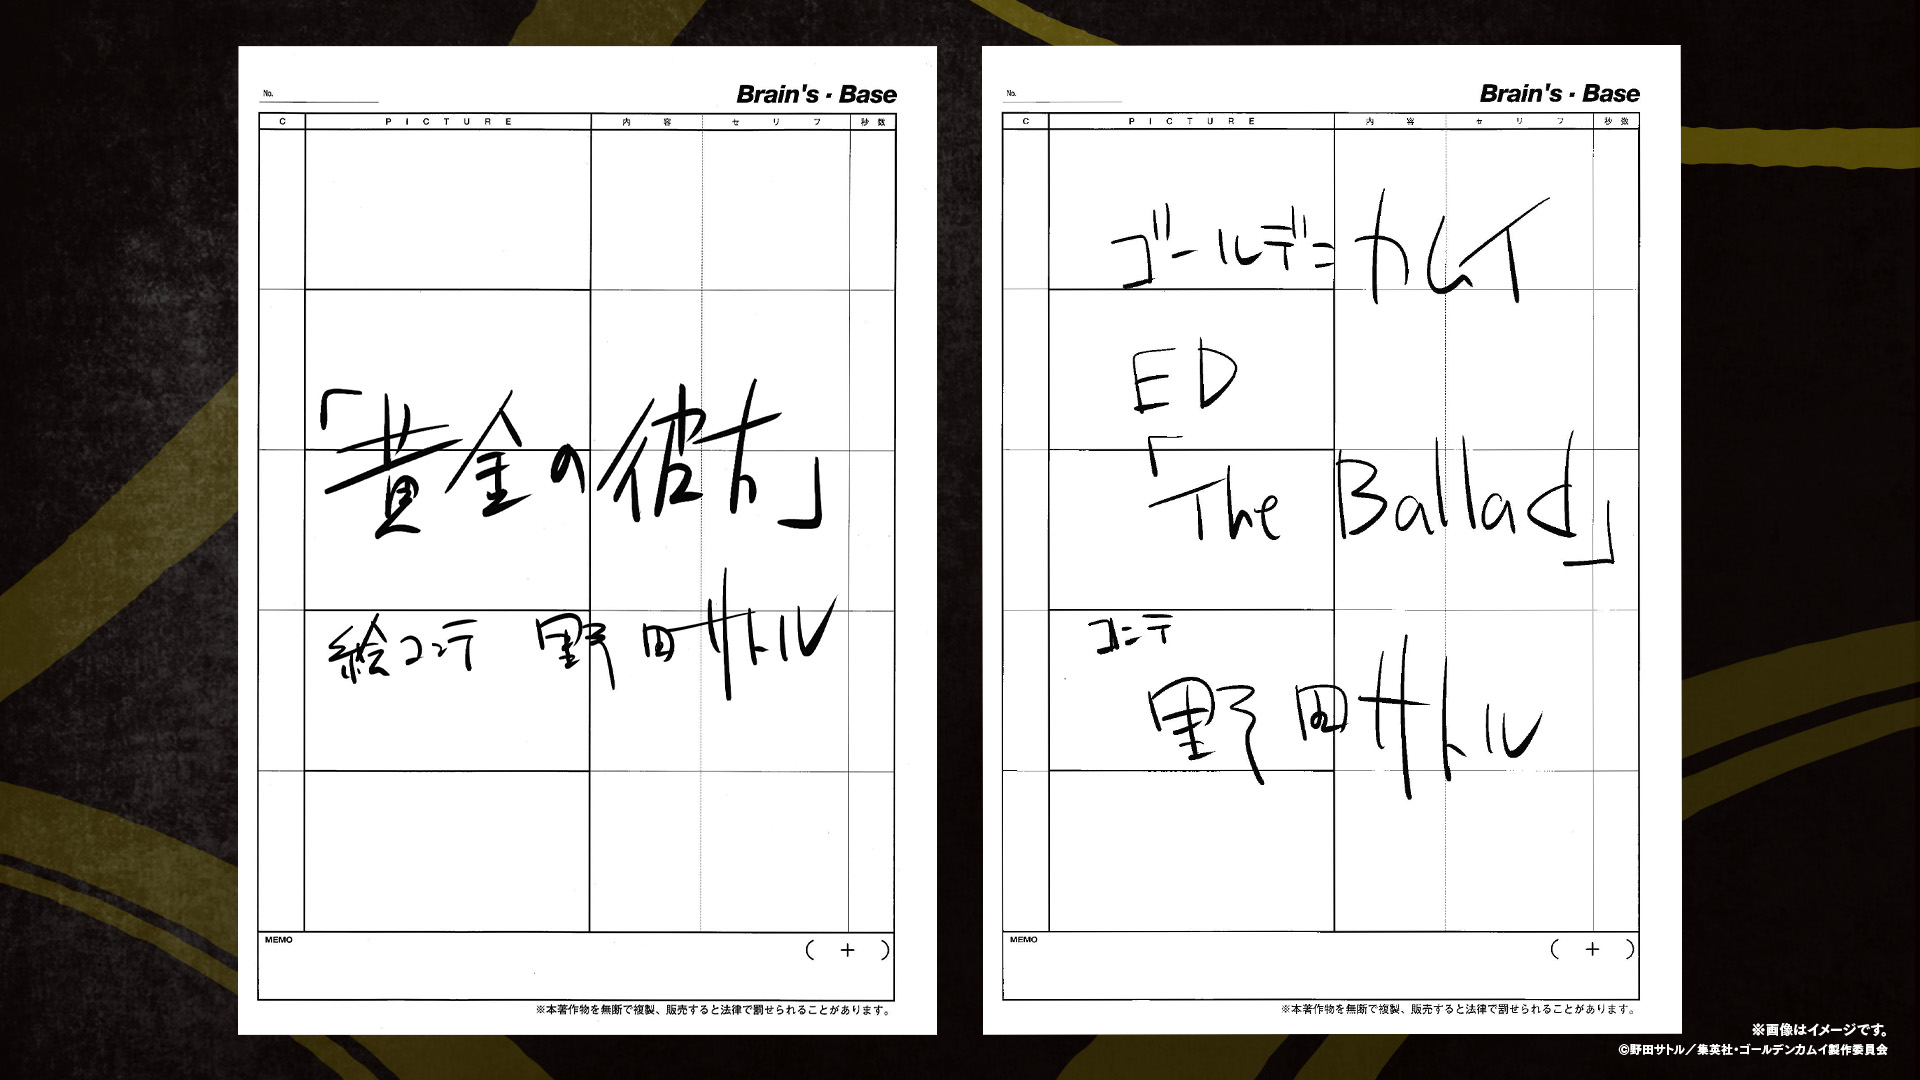 No.
Brain's・Base
C PICTURE 内容 セリフ 秒数
「黄金の彼方」
絵コンテ 野田サトル
MEMO
( + )
※本著作物を無断で複製、販売すると法律で罰せられることがあります。
No.
Brain's・Base
C PICTURE 内容 セリフ 秒数
ゴールデンカムイ
ED
「The Ballad」
コンテ
野田サトル
MEMO
( + )
※本著作物を無断で複製、販売すると法律で罰せられることがあります。
※画像はイメージです。
©野田サトル／集英社・ゴールデンカムイ製作委員会